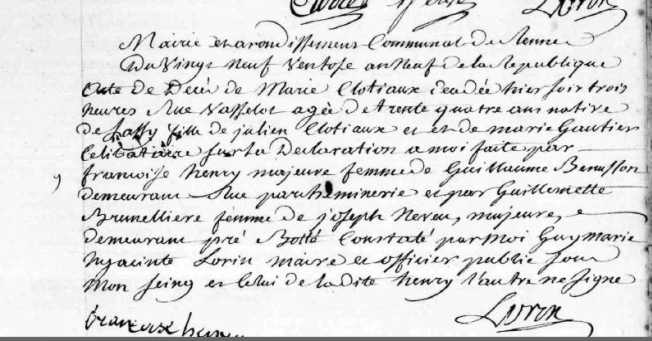 Lorin
Mairie et arondissement Communal de Rennes
Du Vingt neuf Ventose an neuf de la Republique
Acte de Decés de Marie Clotiaux decedée hier soir trois
heures Rue Vasselot agée de trente quatre ans native
de Lassy fille de julien Clotiaux et de marie Gautier
Celibataire sur la Declaration a moi faite par
francoise henry majeure femme de Guillaume
demeurant Rue parcheminerie et par Guillemette
Brunelliere femme de joseph Nereu, majeure,
demeurant pré Botté Constaté par Moi Guy marie
hyacinte Lorin maire et officier public sous
Mon seing et Celui de la dite henry l'autre ne signe
francoise henry
Lorin